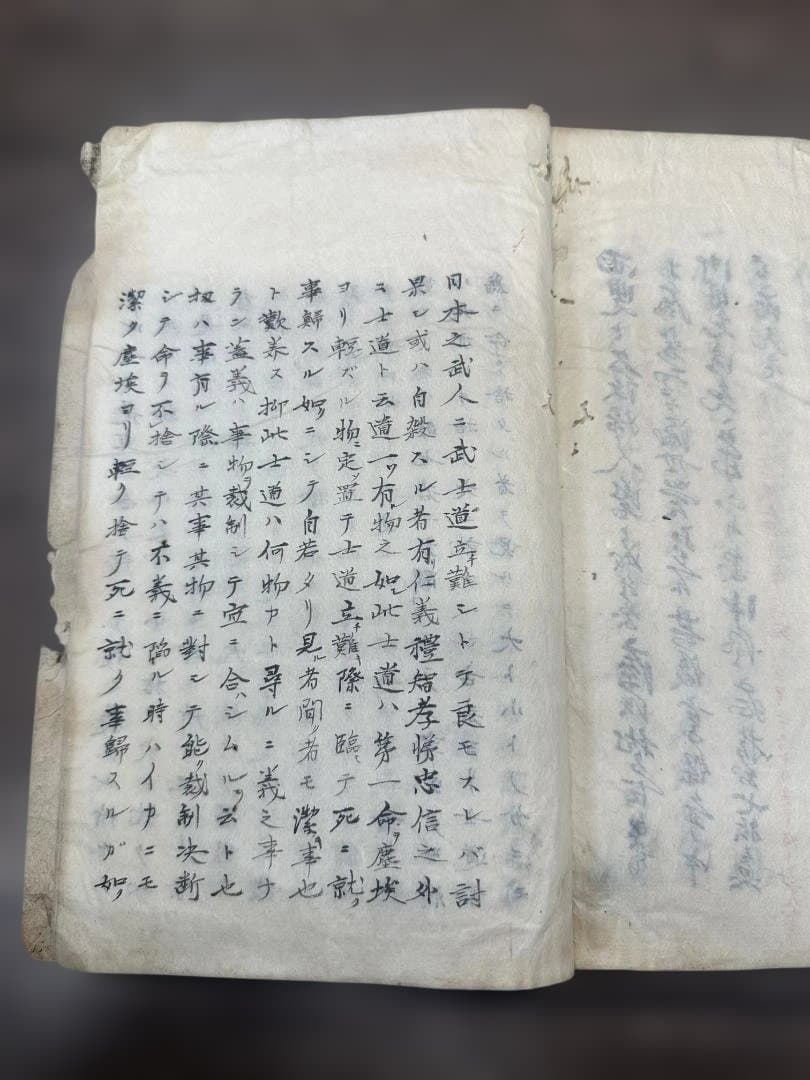 日本之武人ニ武士道立チ難シトテ良モスレバ討
果シ或ハ自殺スル者有リ仁義禮智孝悌忠信之外
ニ士道ト云道一ツ有物之如シ此士道ハ第一命ヲ塵埃
ヨリ輕ズル物ニ定メ置テ士道立チ難キ際ニ臨ミテ死ニ就ク
事歸スル如クニシテ自若タリ見ル者聞ク者モ潔キ事也
ト歎美ス抑此士道ハ何物カト尋ルニ義之事ナ
ラン蓋義ハ事物ヲ裁制シテ宜ニ合ハシムルヲ云ト也
扨ハ事有ル際ニ其事其物ニ對シテ能ク裁制決断
シテ命ヲ不捨シテハ不義ニ陥ル時ハイカニモ
潔ク塵埃ヨリ輕ク捨テ死ニ就ク事歸スルガ如ク